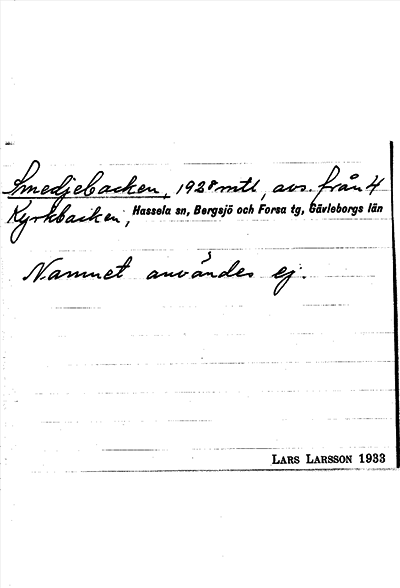 Smedjebacken, 1928 mtl, avs. från 4
Kyrkbacken, Hassela sn, Bergsjö och Forsa tg, Gävleborgs län
Namnet användes ej.
LARS LARSSON 1933